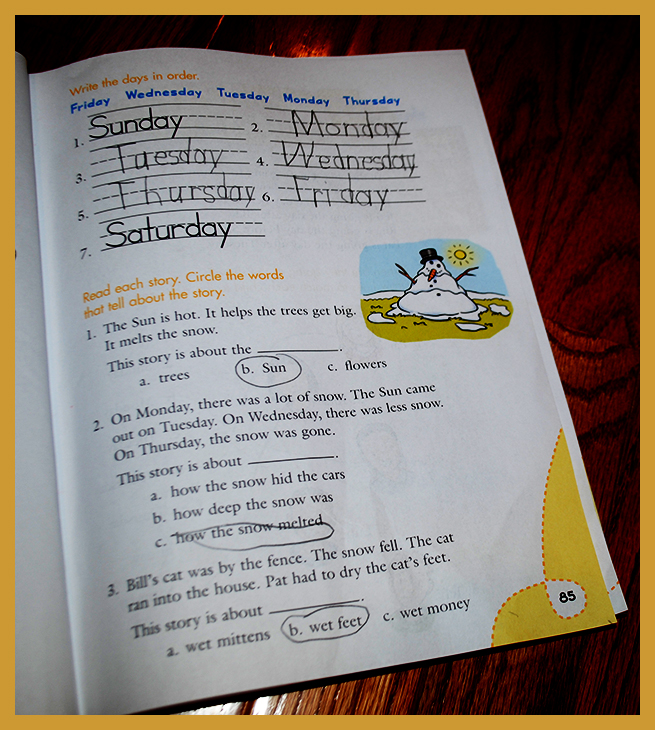 Write the days in order.
Friday Wednesday Tuesday Monday Thursday
1. Sunday 2. Monday
3. Tuesday 4. Wednesday
5. Thursday 6. Friday
7. Saturday
Read each story. Circle the words
that tell about the story.
1. The Sun is hot. It helps the trees get big.
It melts the snow.
This story is about the __________.
a. trees b. Sun c. flowers
2. On Monday, there was a lot of snow. The Sun came
out on Tuesday. On Wednesday, there was less snow.
On Thursday, the snow was gone.
This story is about __________.
a. how the snow hid the cars
b. how deep the snow was
c. how the snow melted
3. Bill's cat was by the fence. The snow fell. The cat
ran into the house. Pat had to dry the cat's feet.
This story is about __________.
a. wet mittens b. wet feet c. wet money
85